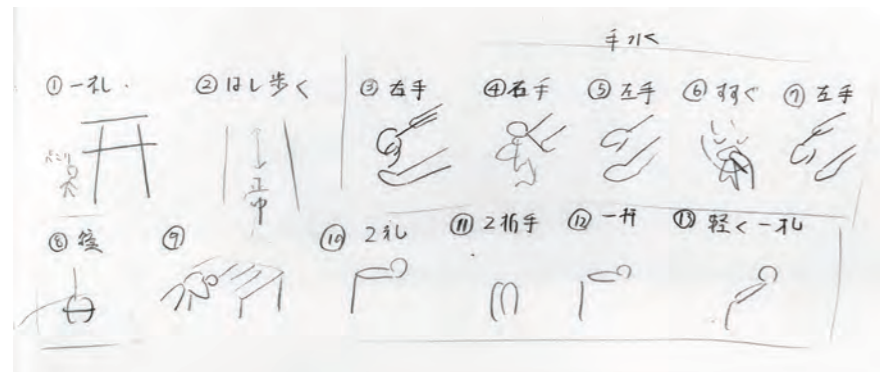 手水
①一礼
②はし歩く
③左手
④右手
⑤左手
⑥すすぐ
⑦左手
ぺこり
正中
⑧
⑨
⑩ 2礼
⑪ 2拍手
⑫ 一
⑬ 軽く一礼